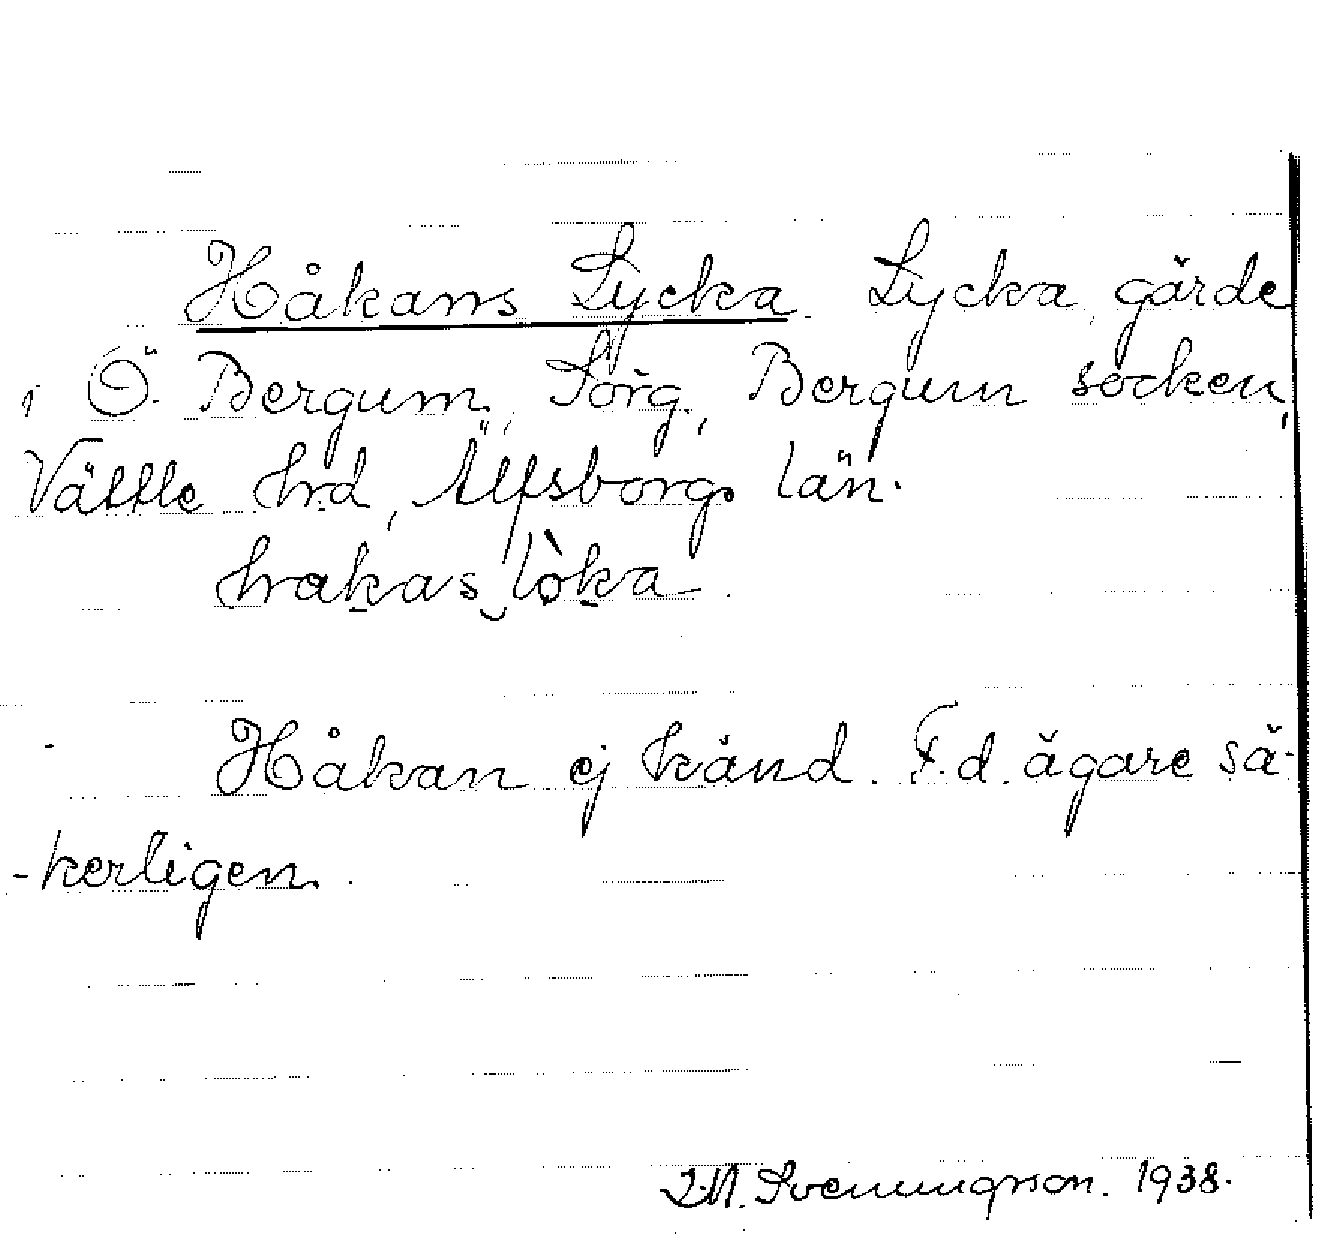 Håkans Lycka. Lycka, gärde
i Ö. Bergum, Sörg., Bergum socken,
Vättle hrd, Älfsborgs län.
hakas lò̜ka
Håkan ej känd. F.d. ägare sä-
-kerligen.
J.M. Svenungson. 1938.